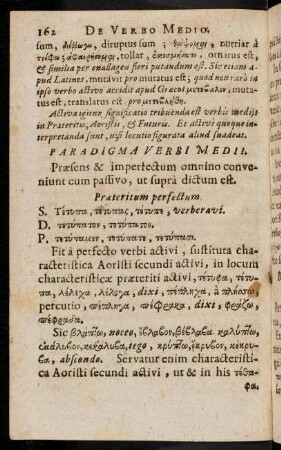 162 DE VERBO MEDIO.
sum, diruptus sum; θρέψομαι, nutriar à
τρέφω; ἀφαιρήσομαι, tollar, ornatus est,
& similia per enallagen fieri putandum est. Sic etiam a-
pud Latinos, mutavit pro mutatus est; quod non rarò in
ipso verbo activo accidit apud Græcos μετέβαλεν, muta-
tus est, translatus est. pro μετεβλήθη.
Activa igitur significatio tribuenda est verbis mediis
in Præterito, Aoristis, & Futuris. Et active quoque in-
terpretanda sunt, nisi locutio figurata aliud suadeat.
PARADIGMA VERBI MEDII.
Præsens & imperfectum omnino conve-
niunt cum passivo, ut suprà dictum est.
Præteritum perfectum.
S. Τέτυπα, τέτυπας, τέτυπε, verberavi.
D. τετύπατον, τετύπατον.
P. τετύπαμεν, τετύπατε, τετύπασι.
Fit à perfecto verbi activi, sustituta cha-
racteristica Aoristi secundi activi, in locum
characteristicæ præteriti activi, τέτυφα, τέτυ-
πα, λέλεχα, λέλογα, dixi, πέπληχα, à πλήσσω,
percutio, πέπληγα, πέφρακα, dixi, φράζω,
πέφραδα.
Sic βλάπτω, noceo, ἔβλαβον, βέβλαβα. καλύπτω,
ἐκάλυβον, κεκάλυβα, tego, κρύπτω, ἔκρυβον, κέκρυ-
βα, abscondo. Servatur enim characteristi-
ca Aoristi secundi activi, ut & in his τέθα-
φα.